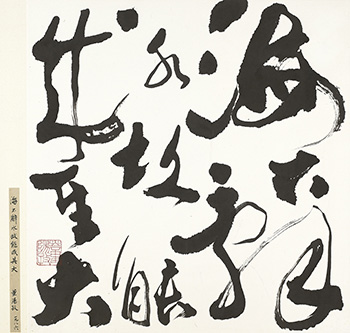 海不辭
水故能
成其大
海不辭水故能成其大 董陽孜